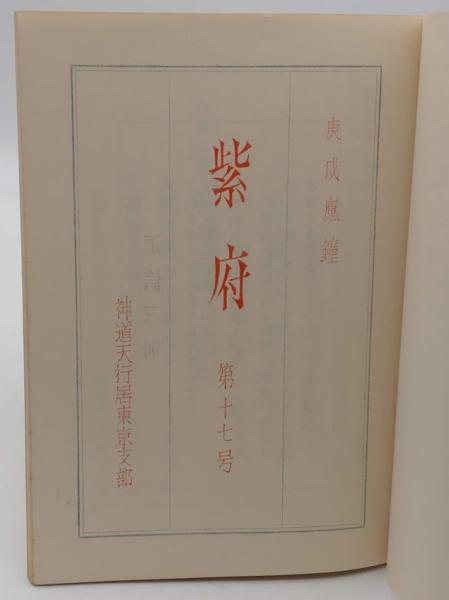 庚戌應鐘
紫府 第十七号
神道天行居東京支部